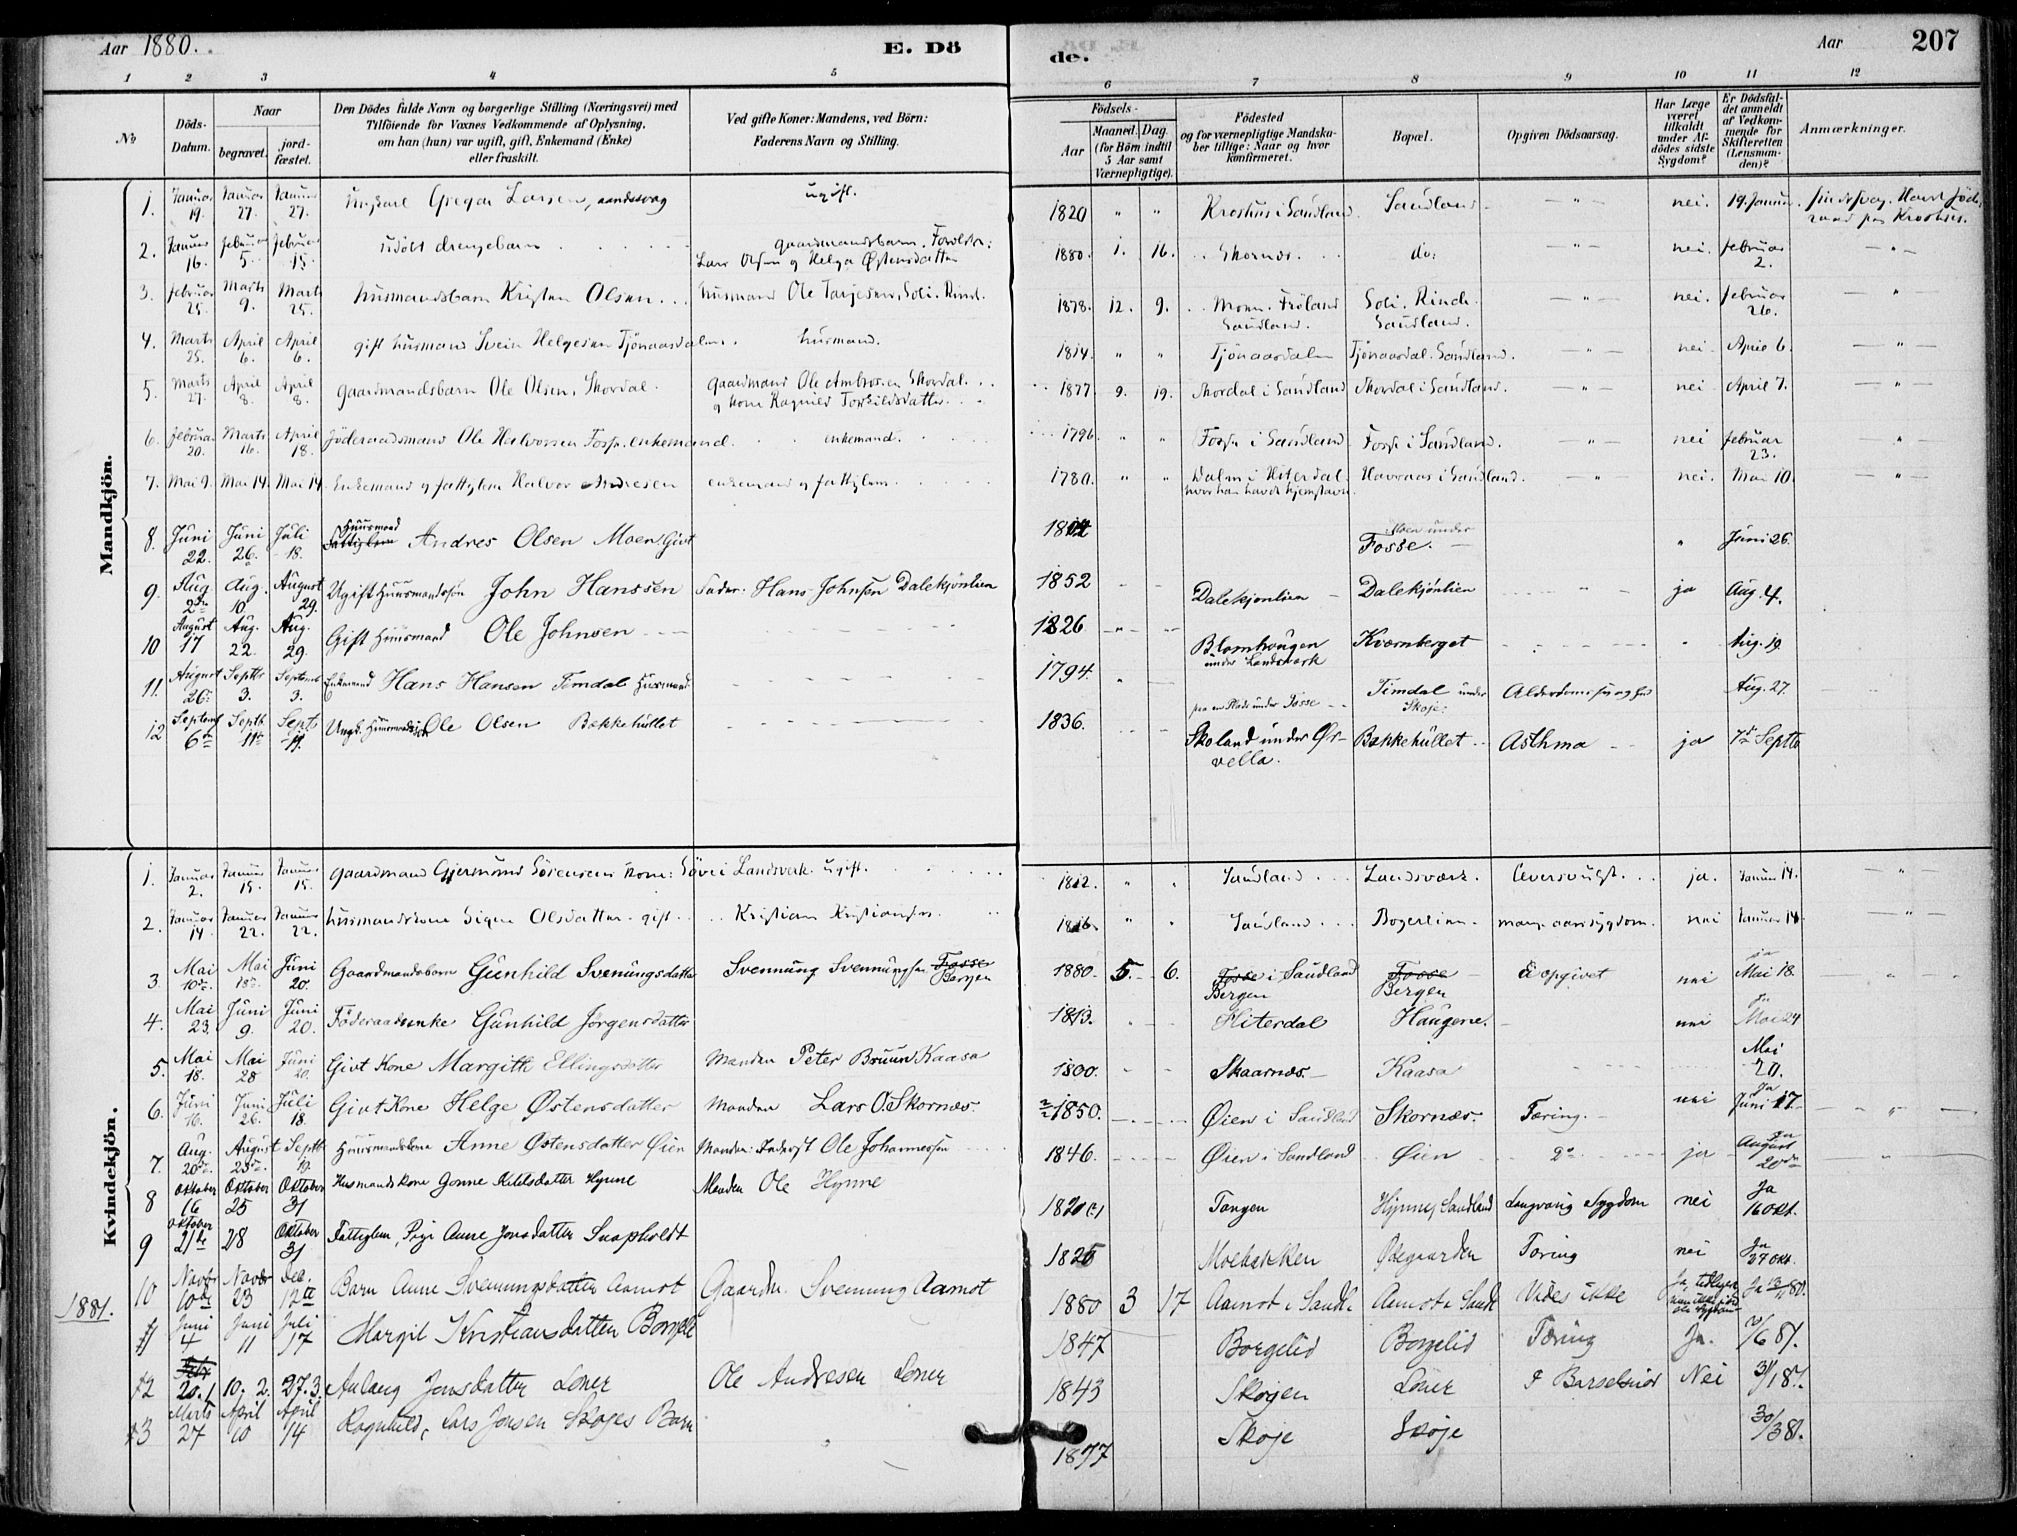 Aar 1880. E. Dö de. Aar 207
1 2 3 4 5 6 7 8 9 10 11 12
No Döds-Datum. Naar begravet. jordfæstet. Den Dödes fulde Navn og borgerlige Stilling (Næringsvei) med Tilföiende for Voxnes Vedkommende af Oplysning, om han (hun) var ugift, gift, Enkemand (Enke) eller fraskilt. Ved gifte Koner: Mandens, ved Börn: Faderens Navn og Stilling. Födsels- Aar Maaned. Dag. (for Börn indtil 5 Aar samt Værnepligtige). Födested og for værnepligtige Mandskaber tillige: Naar og hvor konfirmeret. Bopæl. Opgiven Dödsaarsag. Har Læge været tilkaldt under Afdödes sidste Sygdom? Er Dödsfaldet anmeldt af Vedkommende for Skifteretten (Lensmanden)? Anmærkninger.
Mandkjön.
1. Januar 19. Januar 27. Januar 27. Ungkarl Gregar Larsen, aandssvag ugift. 1820 " " Kroshus i Sauland. Sauland - " - nei. 19. Januar.
2. Januar 16. Februar 5. Februar 15. udöbt drengebarn gaardmandsbarn. Forældre: Lars Olsen og Helga Østensdatter 1880. 1. 16. Skornæs. do: - " - nei. Februar 2. - " -
3. Februar 25. Marts 9. Marts 25. husmandsbarn Kristen Olsen. husmand Ole Tarjesen, Soli. Rind. 1878. 12. 9. Moen. Fröland Sauland. Soli. Rinde. Sauland. - " - nei. Februar 26. - " -
4. Marts 25. April 6. April 6. gift husmand Svein Helgesen Tjönaasdalen. husmand. 1814. " " Tjönaasdalen Tjönaasdal. Sauland. - " - nei. April 6. - " -
5. Marts 27. April 8. April 8. gaardmandsbarn Ole Olsen, Skordal. gaardmand Ole Ambrosen Skordal. og kone Ragnild Torkildsdatter. 1877 9. 19. Skordal i Sauland Skordal i Sauland. - " - nei April 7. - " -
6. Februar 20. Marts 16. April 18. Föderaadsmand Ole Halvorsen Fosse. enkemand. enkemand. 1796. " " Fosse i Sauland Fosse i Sauland. - " - nei Februar 23. "
7. Mai 9. Mai 14. Mai 14 Enkemand og fattiglem Halvor Andresen enkemand og fattiglem. 1780. " " Dalen i Hiterdal hvor han havde hjemstavn. Havraas i Sauland. - " - nei. Mai 10. - " -
8. Juni 22. Juni 26. Juli 18. Huusmand Fattiglem Andres Olsen Moen. Givt Moen under Fosse. " Juni 26.
9. Aug. 2den Aug. 10. August 29. Ugift Huusmandssön John Hanssen Fader: Hans Johnsen Dalekjönlien 1852 Dalekjonlien Dalekjönlien " ja Aug. 4.
10 August 17 Aug. 22. Aug. 29. Gift Huusmand Ole Johnsen 1826 Blomhaugen under Landsverk Kværnberget Aug. 19.
11. August 26. Septbr 3. Septemb 3. Enkemand Hans Hansen Timdal Huusmand. 1794. paa en Plads under Fosse Timdal under Skoje. Aug. 27.
12 Septemb 6te Septb. 11te Septb 11. Ungk. Huusmandssön Ole Olsen Bakkehullet 1836. Skoland under Ørvella. Bakkehullet Asthma ja 7de Septb
Kvindekjön.
1. Januar 2. Januar 15. Januar 15. gaardmand Gjermund Sörensens kone: Söve i Landsverk ugift. 1812. " " Sauland Landsværk. ja. Januar 14. - " -
2. Januar 14. Januar 22. Januar 22. husmandskone Signe Olsdatter. gift. Kristian Kristiansen. " " Sauland Bogerlien mang. aars sygdom. nei Januar 14. - " -
3. Mai 10de. Mai 18de. Juni 20. Gaardmandsbarn Gunhild Svenungsdatter Svennung Svennungsen Fosse Bergen 1880. 5. 6. Fosse i Sauland Bergen Fosse Bergen Ei opgivet nei ja Mai 18.
4. Mai 23. Juni 9. Juni 20. Föderaadsenke Gunhild Jörgensdatter 1813. Hiterdal Haugene. nei Ja Mai 24
5. Mai 18. Mai 28 Juni 20. Givt Kone Margith Ellingsdatter Manden Peter Bruun Kaasa 1800. Skaarnæs. Kaasa Mai 20.
6. Juni 16. Juni 26. Juli 18. Givt Kone Helge Østensdatter Manden Lars O. Skornæs. 1850. Øien i Sauland Skornæs. Tæring. nei Ja Juni 17
7. Aug. 20de. August 25de. Septb 19 Huusmandskone Anne Østensdatter Øien Manden: Inderst Ole Johannessen 1846. Øien i Sauland Øien Do ja Ja August 20de
8 Oktober 16 Oktober 25 Oktober 31 Husmandskone Gonne Kittilsdatter Hynne Manden Ole Hynne Tangen Hynne, Sauland Langvarig Sygdom nei Ja 16 Okt.
9 Oktober 21de 28 Oktober 31 Fattiglem, Pige Anne Jonsdatter Snapholdt 1825 Moebakken Ødegaarden Tæring nei Ja 27 Okt.
10 Novbr 10de Novbr 23 Dec. 12te Barn Anne Svenningsdatter Aamot Gaardm. Svenning Aamot 1880 3 17 Aamot i Saul. Aamot i Saul. Vides ikke
1881.
11 Juni 4 Juni 11 Juli 17 Margit Kristiansdatter Borgeli 1847 Borgelid Borgelid Tæring Ja. /6 81.
12 Febr 20.1 10. 2. 27.3 Aslaug Jonsdatter Löner Ole Andresen Löner 1843 Skogen Löner I Barselnöd Nei 31/1 81.
13 Marts 27 April 10 April 14 Ragnhild, Lars Jonsen Skojes Barn 1877 Skoje Skoje 30/3 81.